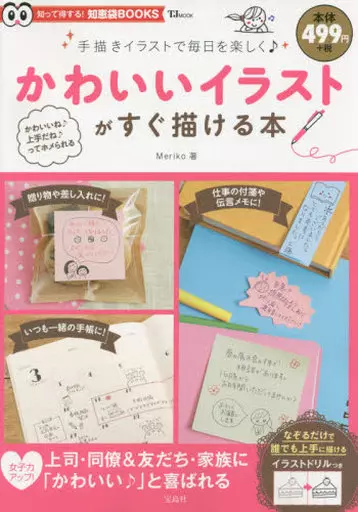 知って得する! 知恵袋BOOKS
TJ MOOK
本体
499円
+税
手描きイラストで毎日を楽しく♪
かわいいイラスト
がすぐ描ける本
かわいいね♪
上手だね♪
ってホメられる
Meriko 著
贈り物や差し入れに!
仕事の付箋や
伝言メモに!
いつも一緒の手帳に!
3
女子力
アップ!
上司・同僚&友だち・家族に
「かわいい♪」と喜ばれる
なぞるだけで
誰でも上手に描ける
イラストドリルつき
宝島社